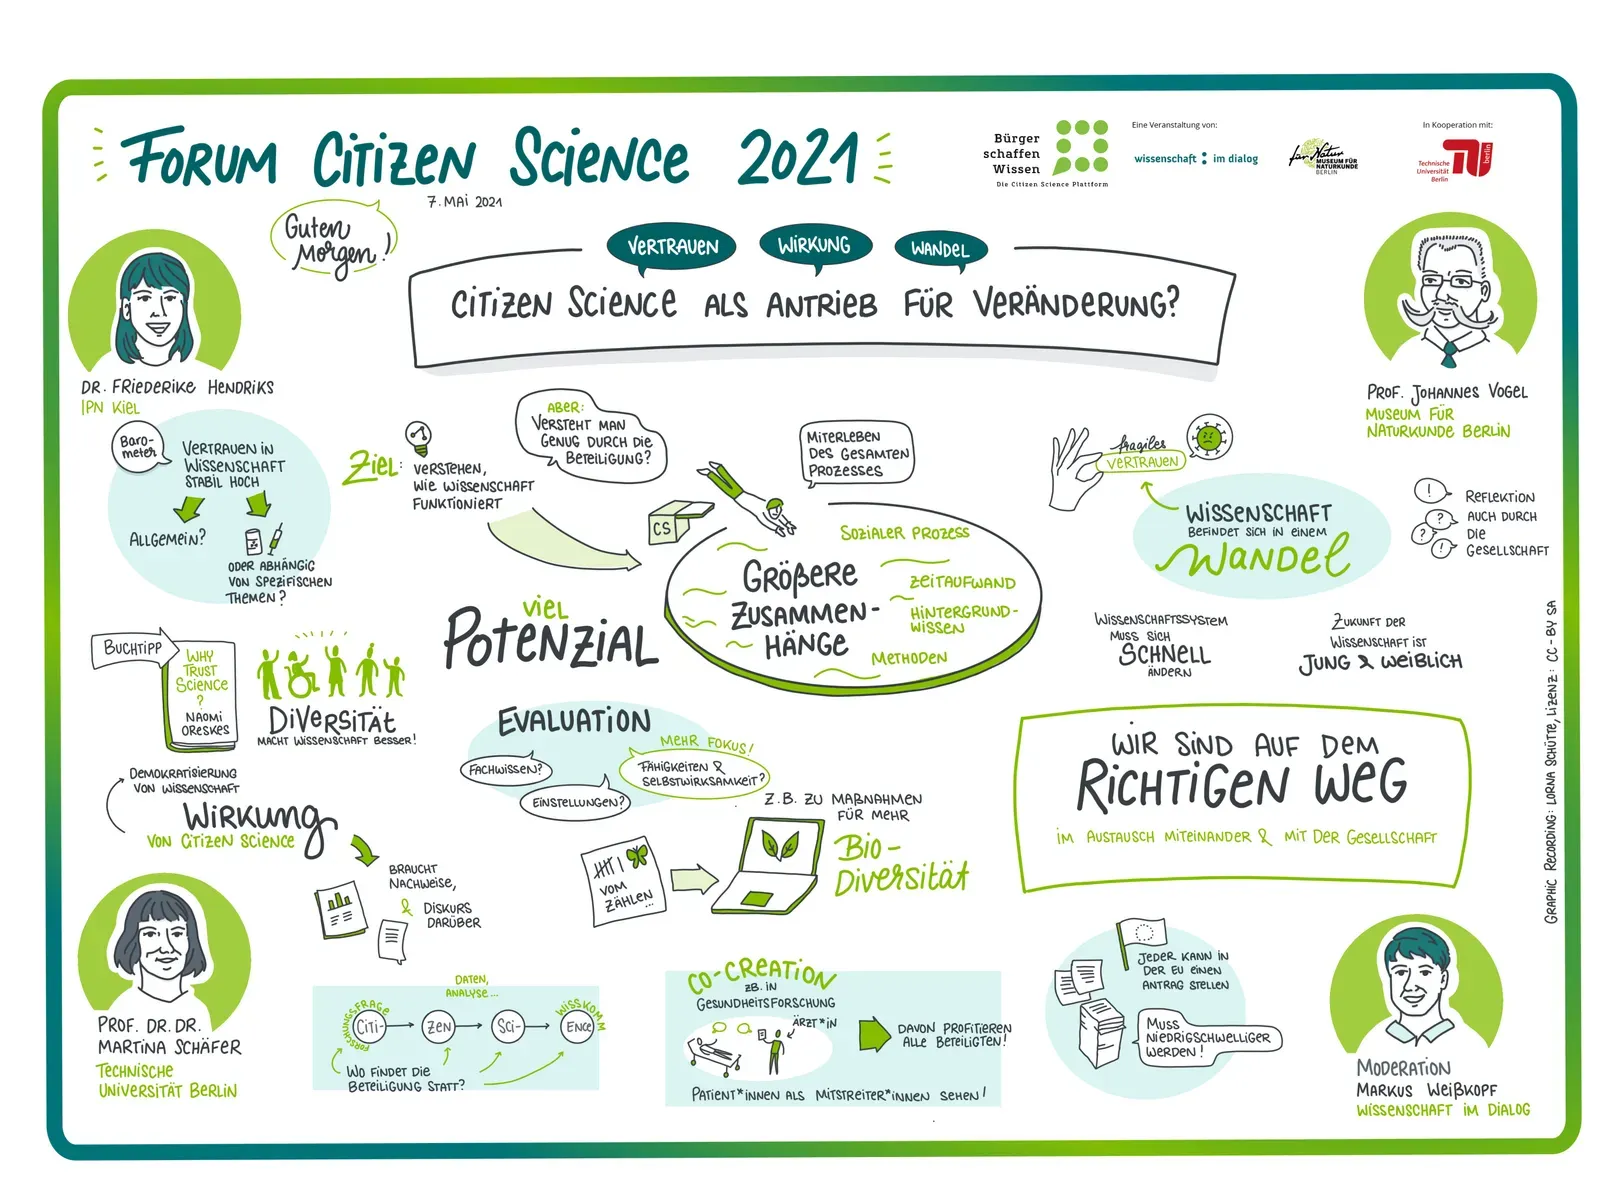 Forum Citizen Science 2021
7. Mai 2021
Bürger
schaffen
Wissen
Die Citizen Science Plattform
Eine Veranstaltung von:
wissenschaft : im dialog
für Natur
MUSEUM FÜR
NATURKUNDE
BERLIN
In Kooperation mit:
Technische
Universität
Berlin
berlin
Guten
Morgen!
Vertrauen
Wirkung
Wandel
Citizen Science als Antrieb für Veränderung?
Dr. Friederike Hendriks
IPN Kiel
Prof. Johannes Vogel
Museum für
Naturkunde Berlin
Baro-
meter
Vertrauen in
Wissenschaft
stabil hoch
Allgemein?
oder abhängig
von spezifischen
Themen?
Ziel:
verstehen,
wie Wissenschaft
funktioniert
Aber:
Versteht man
genug durch die
Beteiligung?
Miterleben
des gesamten
Prozesses
CS
Größere
Zusammen-
hänge
Sozialer Prozess
Zeitaufwand
Hintergrund-
wissen
Methoden
viel
Potenzial
fragiles
Vertrauen
Wissenschaft
befindet sich in einem
Wandel
!
?
?
!
Reflektion
auch durch
die
Gesellschaft
Wissenschaftssystem
muss sich
schnell
ändern
Zukunft der
Wissenschaft ist
jung & weiblich
Buchtipp
Why
Trust
Science
?
Naomi
Oreskes
Diversität
macht Wissenschaft besser!
Demokratisierung
von Wissenschaft
Wirkung
von Citizen Science
braucht
Nachweise,
& Diskurs
darüber
Evaluation
Fachwissen?
Einstellungen?
Mehr Fokus!
Fähigkeiten &
Selbstwirksamkeit?
vom
Zählen...
z.B. zu Maßnahmen
für mehr
Bio-
Diversität
Wir sind auf dem
richtigen Weg
im Austausch miteinander & mit der Gesellschaft
Prof. Dr. Dr.
Martina Schäfer
Technische
Universität Berlin
Daten,
Analyse...
Forschungsfrage
Citi-
zen
Sci-
ence
Wisskomm
Wo findet die
Beteiligung statt?
Co-Creation
z.B. in
Gesundheitsforschung
Ärzt*in
davon profitieren
alle Beteiligten!
Patient*innen als Mitstreiter*innen sehen!
Jeder kann in
der EU einen
Antrag stellen
Muss
niedrigschwelliger
werden!
Moderation
Markus Weißkopf
Wissenschaft im Dialog
Graphic Recording: Lorna Schütte, Lizenz: CC-BY SA